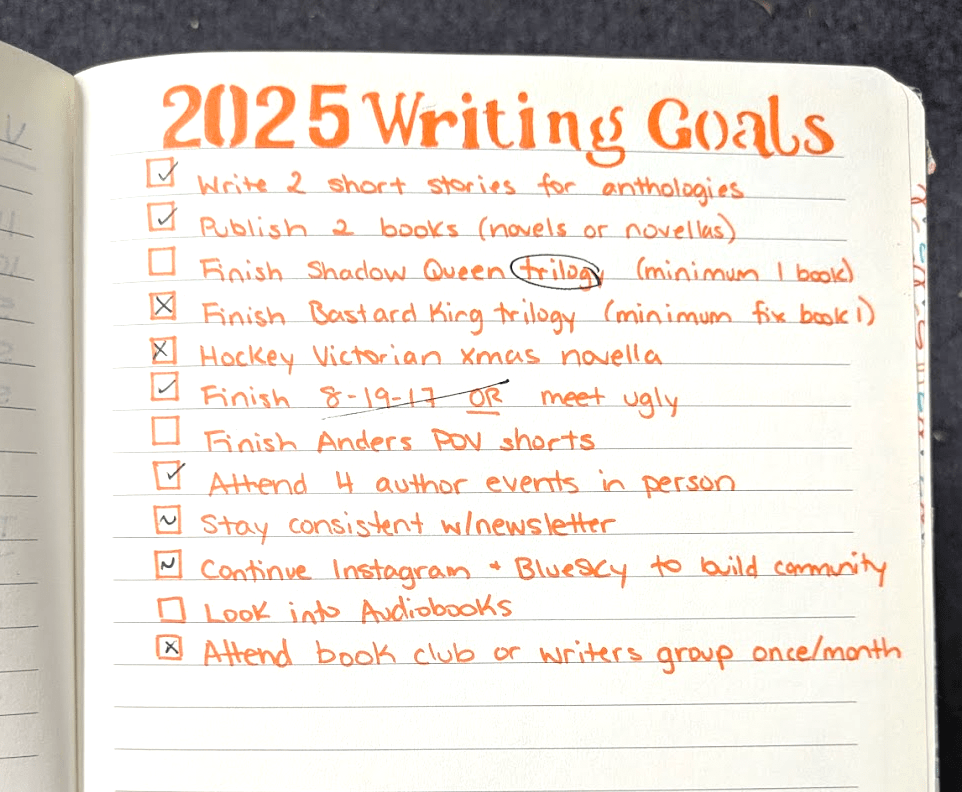 2025 Writing Goals
Write 2 short stories for anthologies
Publish 2 books (novels or novellas)
Finish Shadow Queen trilogy (minimum 1 book)
Finish Bastard King trilogy (minimum fix book 1)
Hockey Victorian xmas novella
Finish 8-19-17 OR meet ugly
Finish Anders POV shorts
Attend 4 author events in person
Stay consistent w/newsletter
Continue Instagram + BlueSky to build community
Look into Audiobooks
Attend book club or writers group once/month